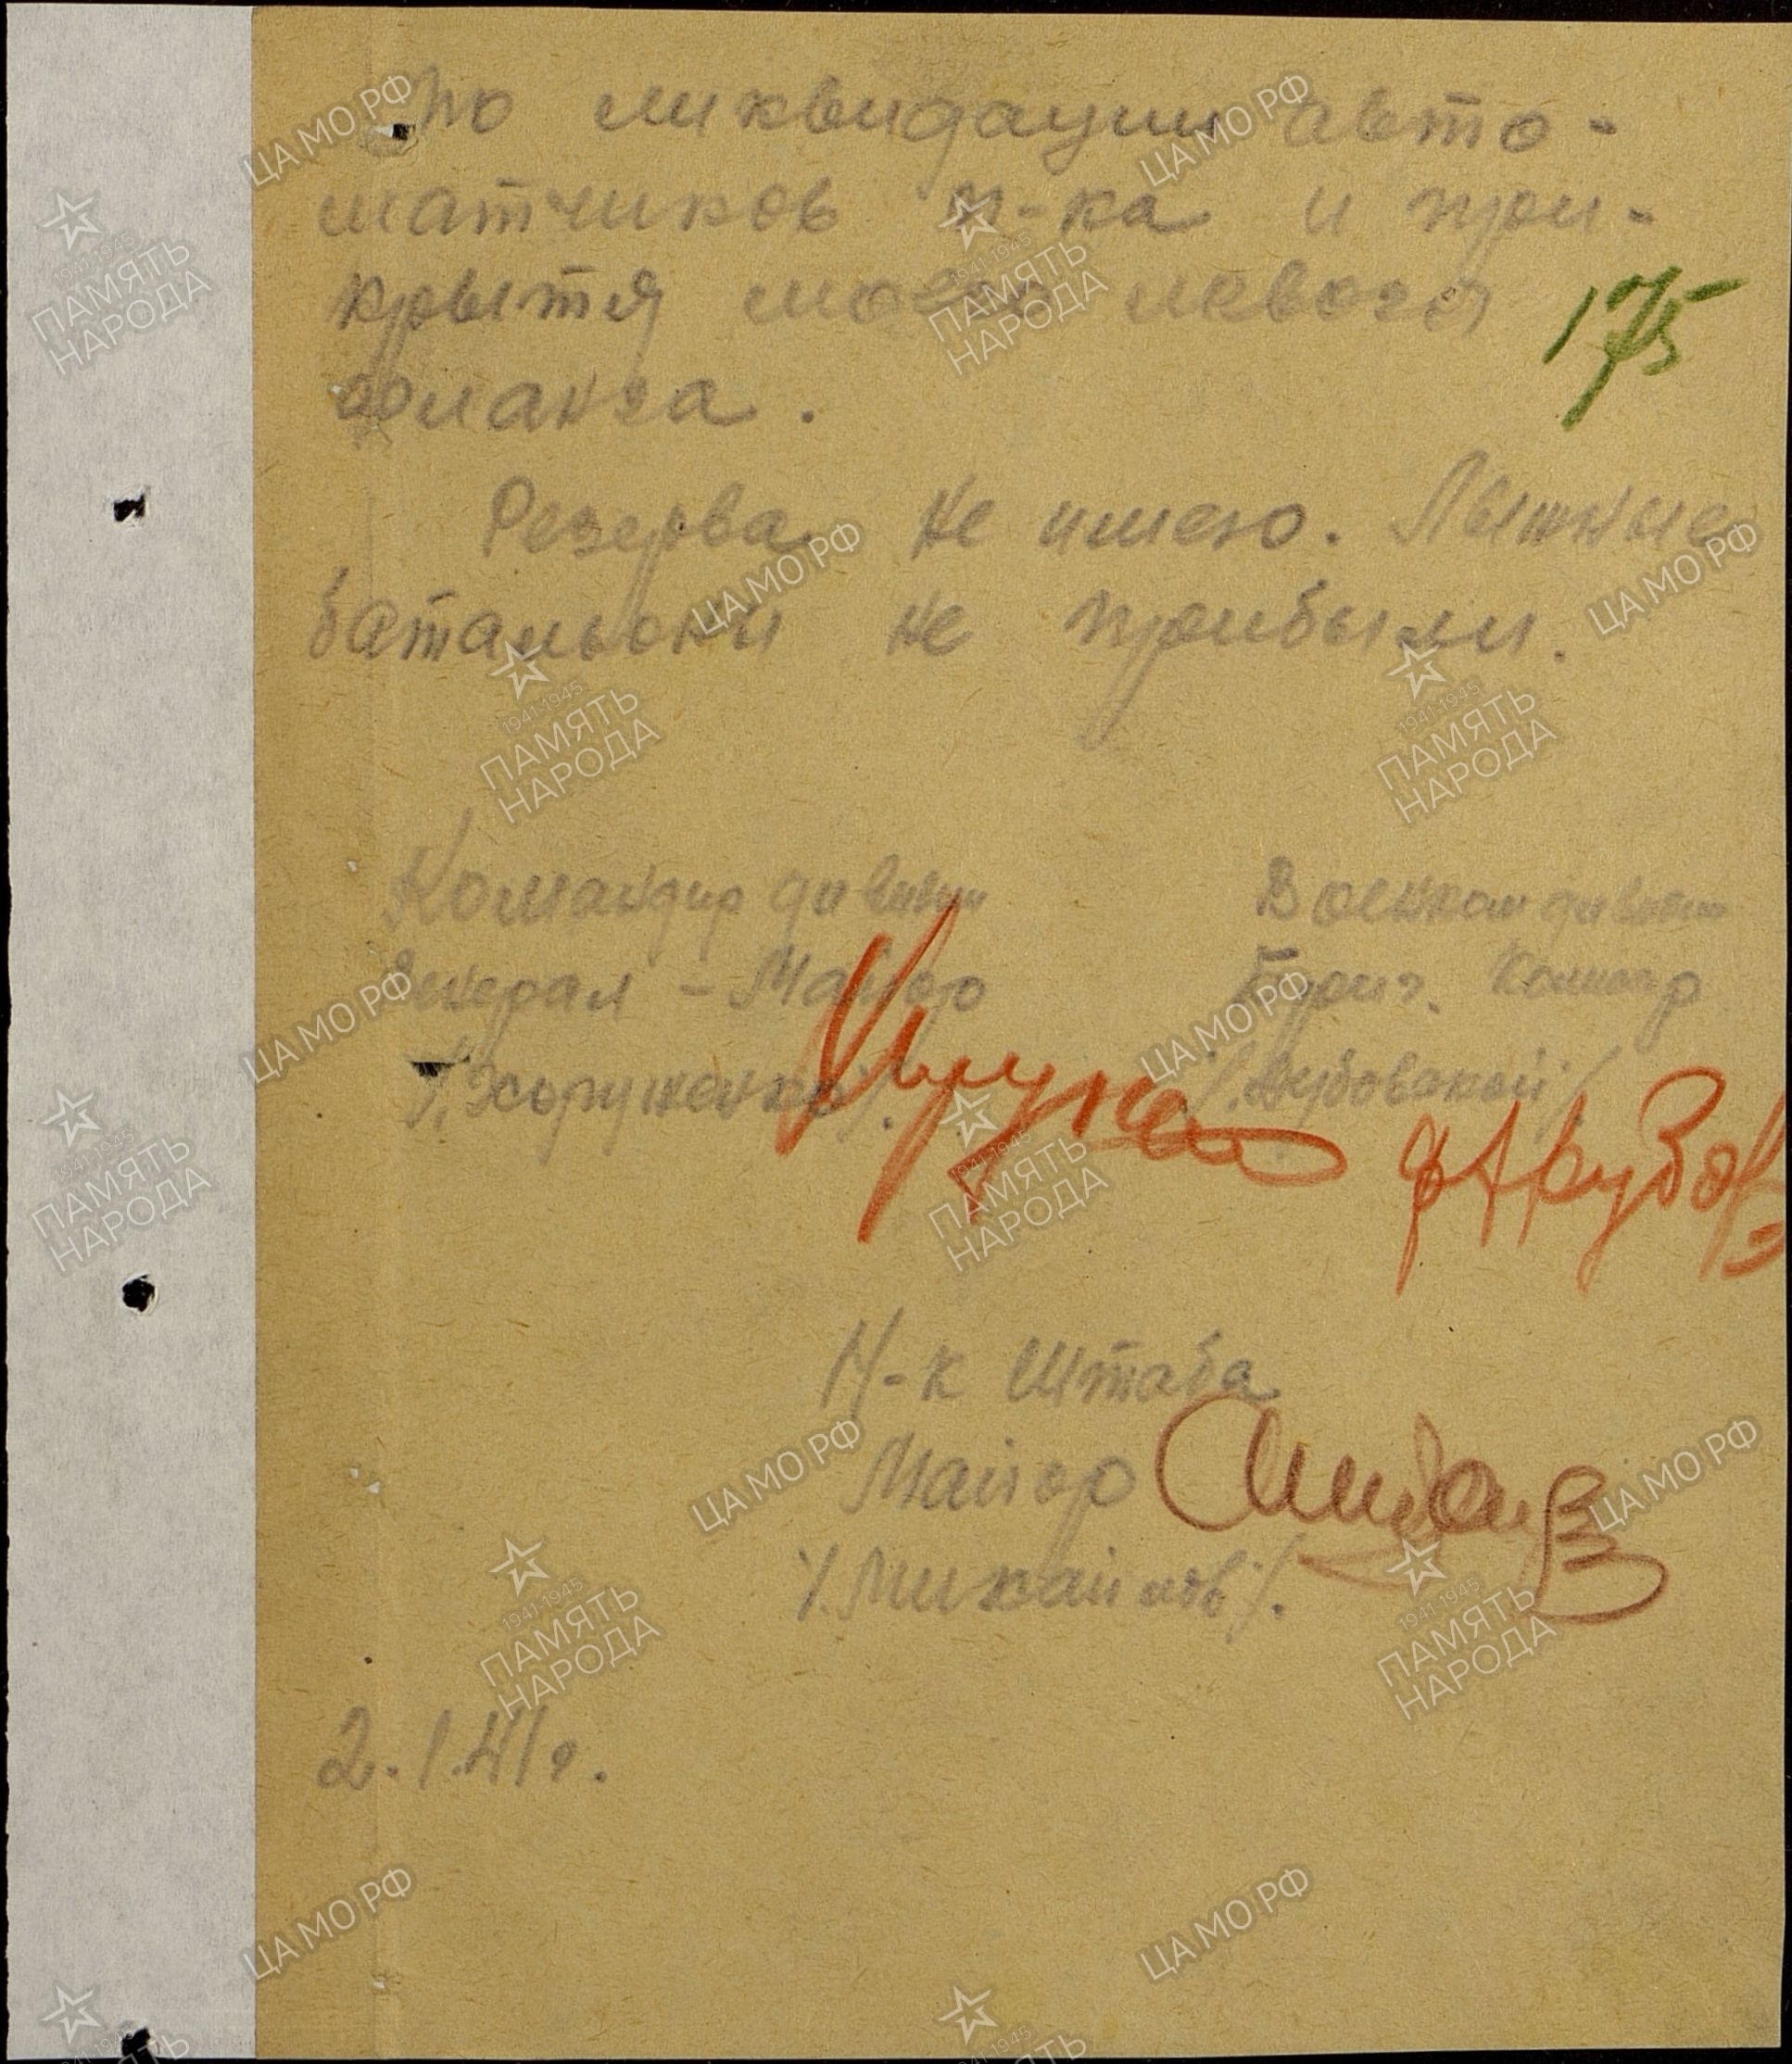 по ликвидации авто-
матчиков п-ка и при-
крытя моего левого
175
фланга.
Резерва не имею. Лыжные
батальоны не прибыли.
Командир дивизии Военком дивизии
Генерал-Майор Бриг. Комиссар
/.Хоруженко/. /.Дубовской/
Н-к Штаба
Майор
/.Михайлов/.
2.1.41г.
ЦА МО РФ
1941-1945
ПАМЯТЬ
НАРОДА